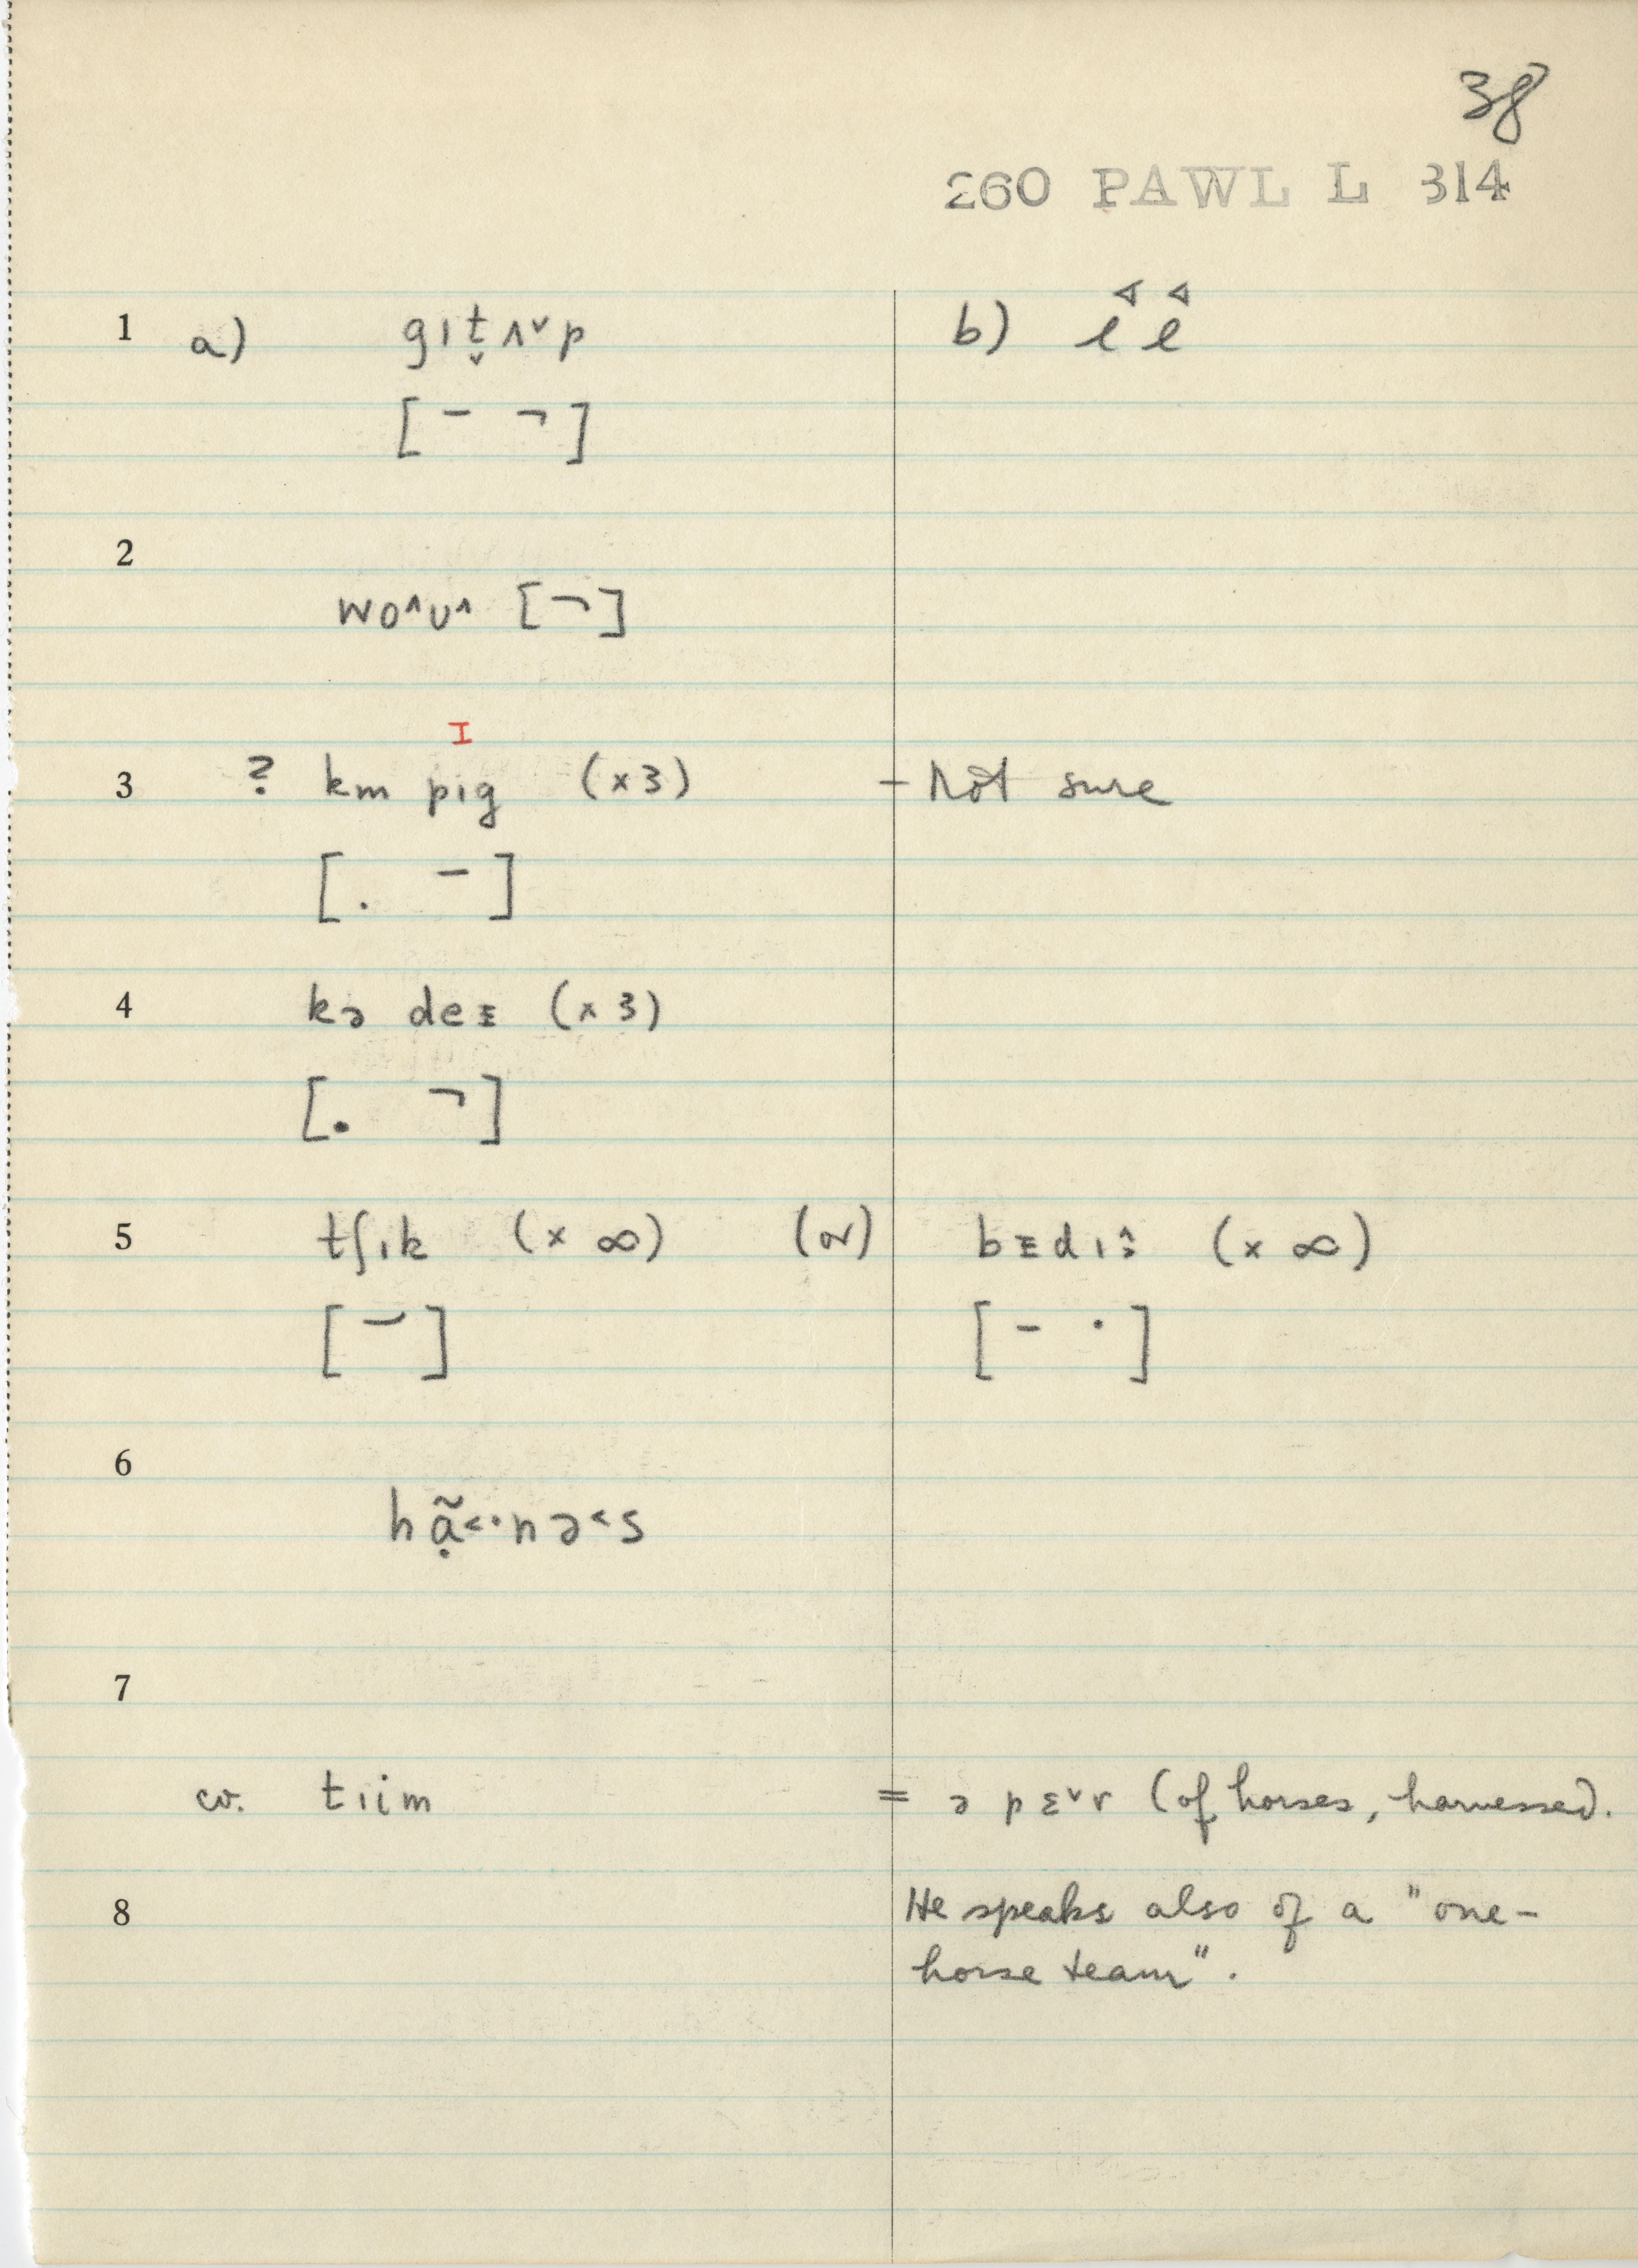 38
260 PAWL L 314
1 a) gɪt̬ʌ˅p b) l l
[ ¯ ¬ ]
2
wo^ʊ^ [¬]
I
3 ? km pɪg (×3) - Not sure
[ . ¯ ]
4 kə deɪ (×3)
[. ¬]
5 tʃɪk (× ∞) (or) bɪdɪ (× ∞)
[ ] [ - · ]
6
hɑ̣̃˂·nə˂s
7
cv. tɪim = ə pɛ˅r (of horses, harnessed.
8 He speaks also of a "one-
horse team".